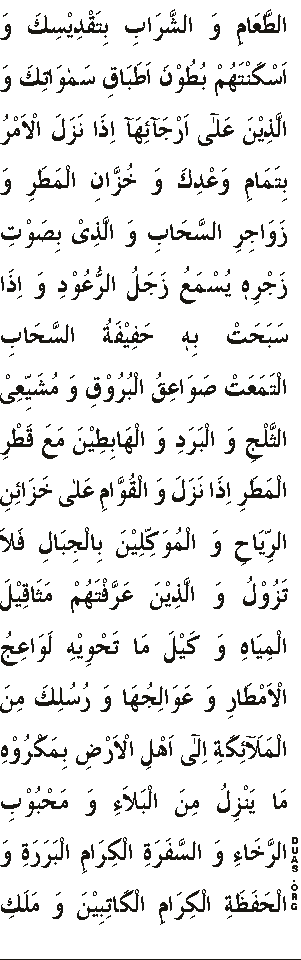 الطَّعَامِ وَ الشَّرَابِ بِتَقْدِيْسِكَ وَ
اَسْكَنْتَهُمْ بُطُوْنَ اَطْبَاقِ سَمٰوَاتِكَ وَ
الَّذِيْنَ عَلٰٓى اَرْجَآئِهَآ اِذَا نَزَلَ الْاَمْرُ
بِتَمَامِ وَعْدِكَ وَ خُزَّانِ الْمَطَرِ وَ
زَوَاجِرِ السَّحَابِ وَ الَّذِىْ بِصَوْتِ
زَجْرِهٖ يُسْمَعُ زَجَلُ الرُّعُوْدِ وَ اِذَا
سَبَحَتْ بِهٖ حَفِيْفَةُ السَّحَابِ
الْتَمَعَتْ صَوَاعِقُ الْبُرُوْقِ وَ مُشَيِّعِىْ
الثَّلْجِ وَ الْبَرَدِ وَ الْهَابِطِيْنَ مَعَ قَطْرِ
الْمَطَرِ اِذَا نَزَلَ وَ الْقُوَّامِ عَلٰى خَزَائِنِ
الرِّيَاحِ وَ الْمُوَكِّلِيْنَ بِالْجِبَالِ فَلاَ
تَزُوْلُ وَ الَّذِيْنَ عَرَّفْتَهُمْ مَثَاقِيْلَ
الْمِيَاهِ وَ كَيْلَ مَا تَحْوِيْهِ لَوَاعِجُ
الْاَمْطَارِ وَ عَوَالِجُهَا وَ رُسُلِكَ مِنَ
الْمَلَآئِكَةِ اِلٰٓى اَهْلِ الْاَرْضِ بِمَكْرُوْهِ
مَا يَنْزِلُ مِنَ الْبَلَاءِ وَ مَحْبُوْبِ
الرَّخَاءِ وَ السَّفَرَةِ الْكِرَامِ الْبَرَرَةِ وَ
الْحَفَظَةِ الْكِرَامِ الْكَاتِبِيْنَ وَ مَلَكِ
DUAS.ORG